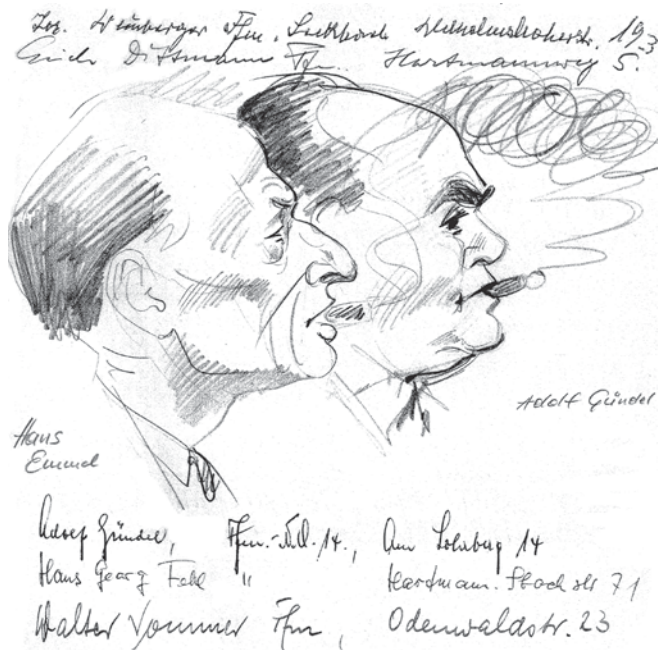 Jos. Weinberger Ffm. Wilhelmshöherstr. 193
Erich Dittmann Ffm. Hartmannweg 5.
Adolf Gündel
Hans
Emmel
Adolf Gündel, Ffm.-N.O. 14., Am Lohrberg 14
Hans Georg Fehl " Hartmann. str 71
Walter Vommer Ffm, Odenwaldstr. 23